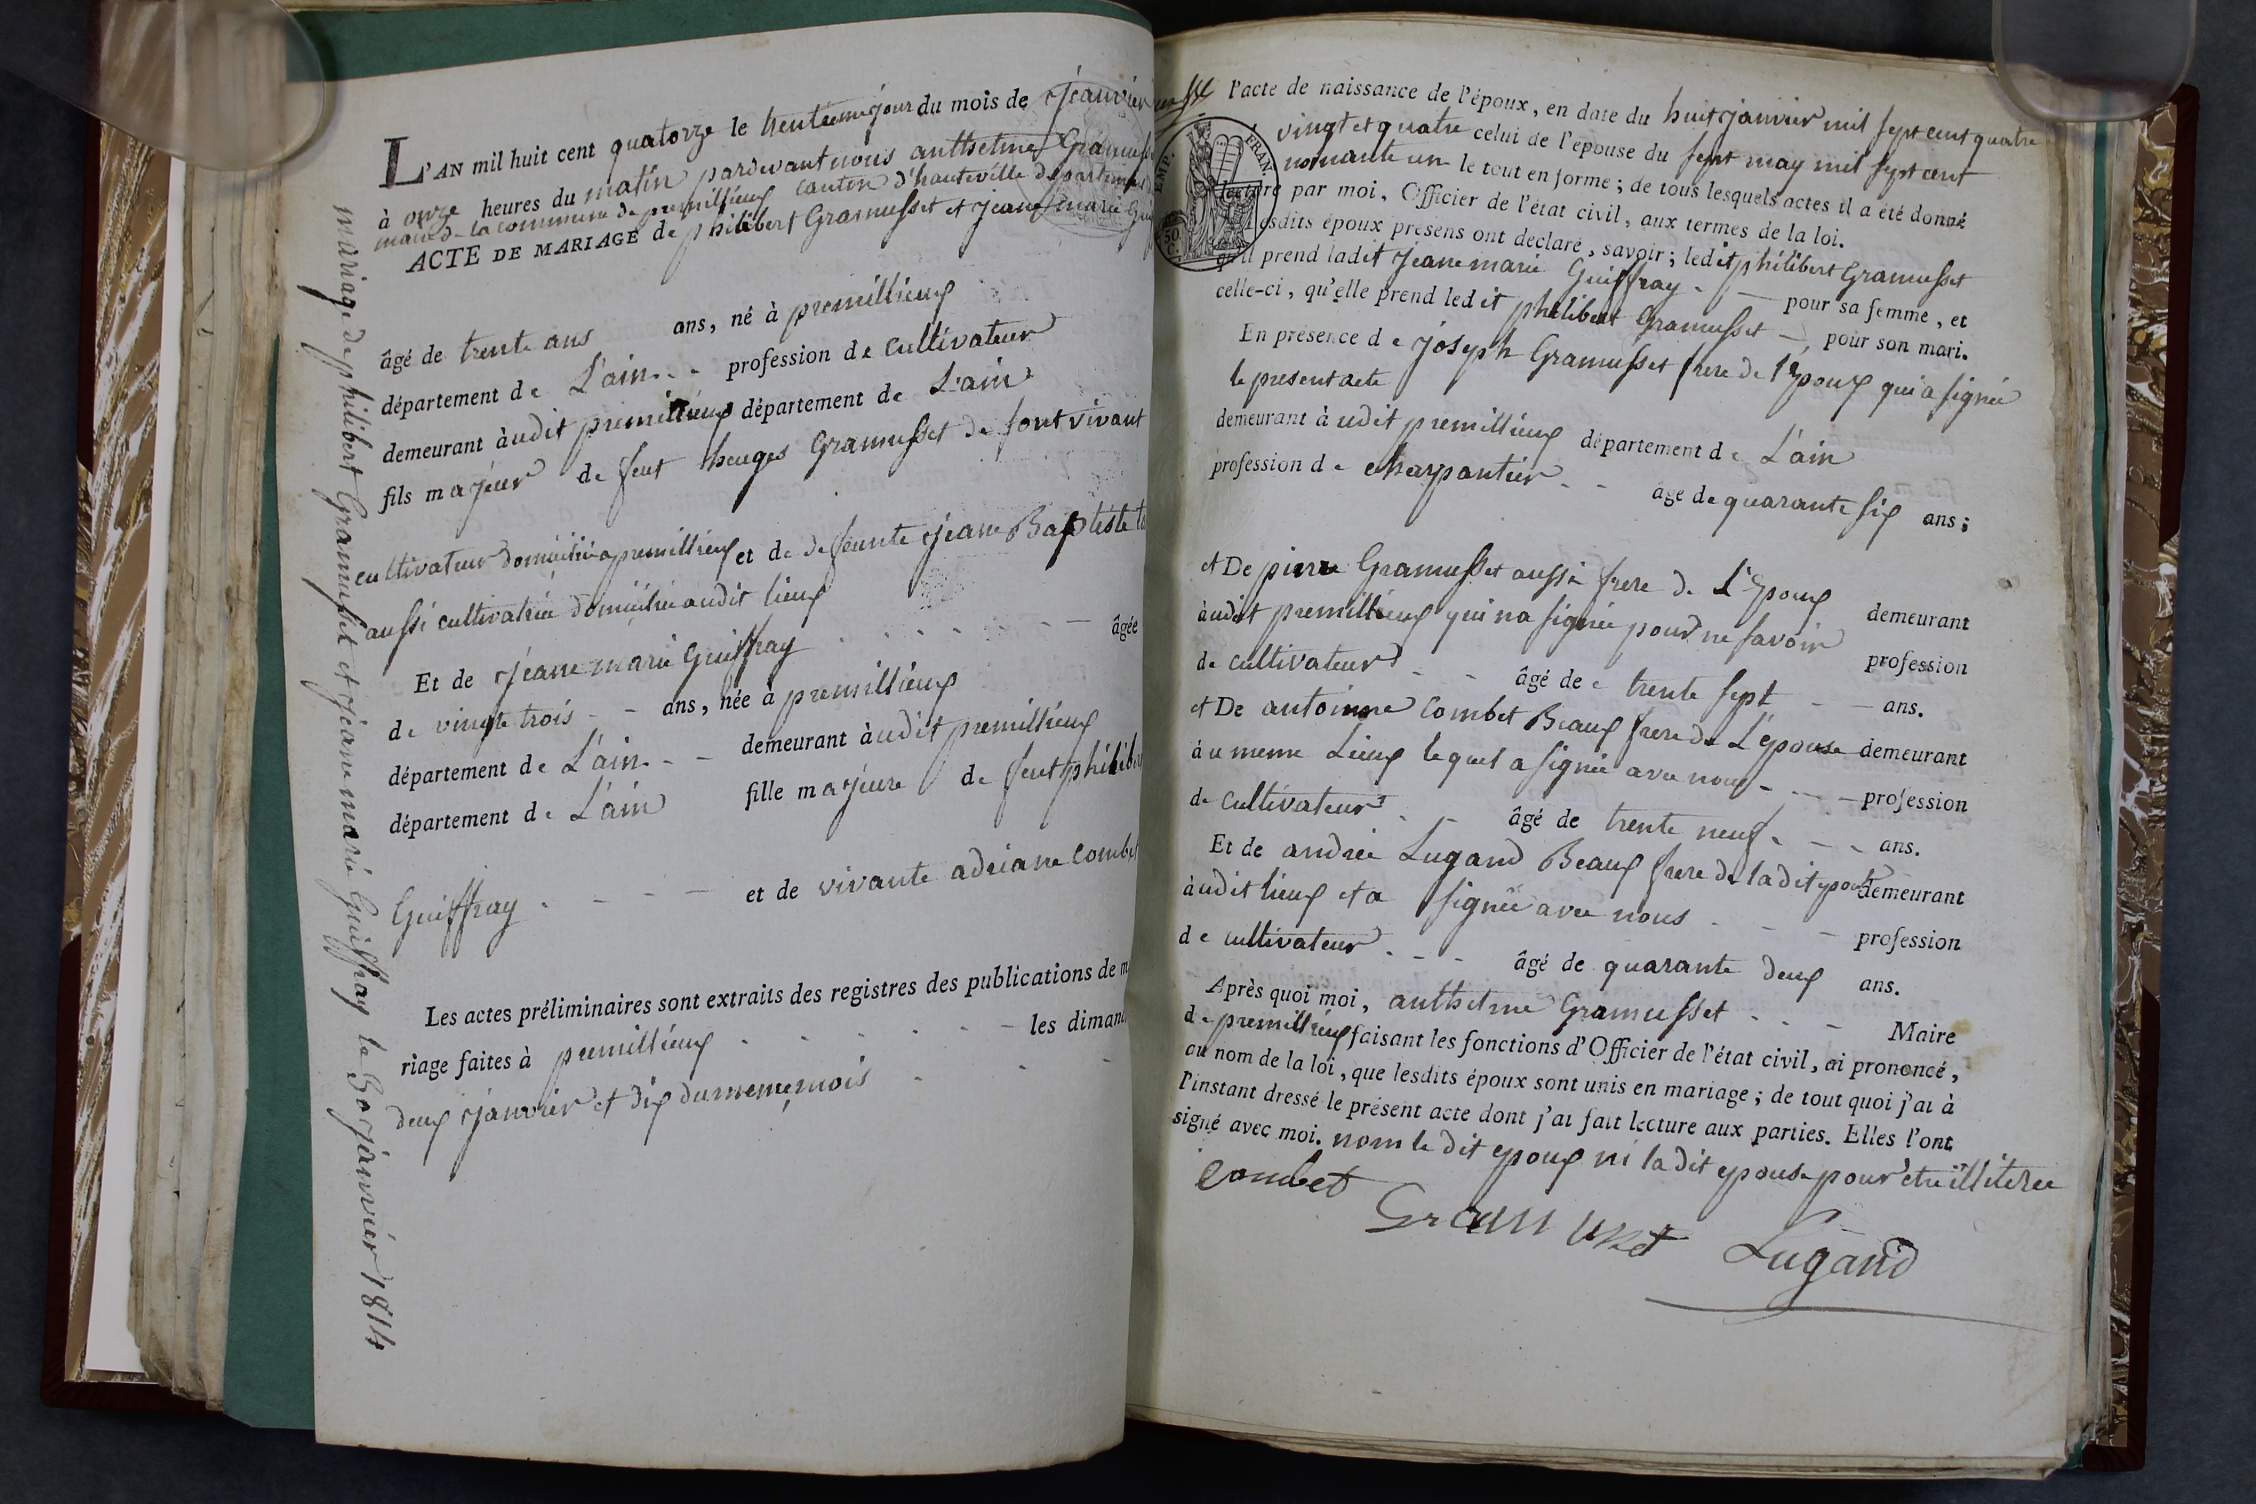 L'AN mil huit cent quatorze le trentieme jour du mois de Jeanvier
à onze heures du matin pardevant nous anthselme Gramuss
maire de la commune de premillieux canton d'hauteville departement
ACTE DE MARIAGE de philibert Gramusset et Jeane marie Gui
âgé de trente ans ans, né à premillieux
département de L'ain profession de cultivateur
demeurant àudit premillieux département de L'ain
fils majeur de feut heuges Gramusset de son vivant
cultivateur domicilié a premillieux et de defeunte Jeane Baptiste
aussi cultivatrice domicilié audit lieux
Et de Jeane marie Guiffray âgée
de vingte trois ans, née à premillieux
département de L'ain demeurant àudit premillieux
département de L'ain fille majeure de feut philib
Guiffray et de vivante adriane combet
Les actes préliminaires sont extraits des registres des publications de m
riage faites à premillieux les diman
deux Janvier et dix du meme mois
mariage de philibert Gramusset et Jeane marie Guiffray le 30 janvier 1814
l'acte de naissance de l'époux, en date du huit janvier mil sept cent quatre
vingt et quatre celui de l'épouse du sept may mil sept cent
nonante un le tout en forme; de tous lesquels actes il a été donné
lecture par moi, Officier de l'état civil, aux termes de la loi.
EMP. FRAN.
50 C.
Lesdits époux présens ont déclaré, savoir; ledit philibert Gramusset
qu'il prend ladit Jeane marie Guiffray pour sa femme, et
celle-ci, qu'elle prend ledit philibert Gramusset pour son mari.
En présence de joseph Gramusset frere de l'epoux qui a signée
le present acte
demeurant àudit premillieux département de L'ain
profession de charpantier âgé de quarante six ans;
et De pierre Gramusset aussi frere de L'epoux demeurant
àudit premillieux qui na signée pour ne savoir profession
de cultivateur âgé de trente sept ans.
et De antoinne combet Beaux frere de L'épouse demeurant
àu meme Lieux lequel a signée avec nous profession
de cultivateur âgé de trente neuf ans.
Et de andrée Lugand Beaux frere de ladit epouse demeurant
àudit lieux et a signée avec nous profession
de cultivateur âgé de quarante deux ans.
Après quoi moi, anthselme Gramusset Maire
de premillieux faisant les fonctions d'Officier de l'état civil, ai prononcé,
au nom de la loi, que lesdits époux sont unis en mariage; de tout quoi j'ai à
l'instant dressé le présent acte dont j'ai fait lecture aux parties. Elles l'ont
signé avec moi. nom le dit epoux ni la dit epouse pour etre illiterée
Combet
Gramuset Lugand